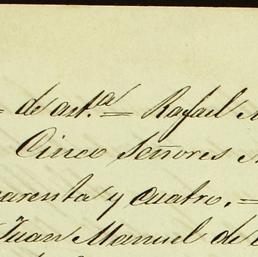 = de art.ª = Rafael
Cinco Señores
arenta y cuatro. =
Juan Manuel de